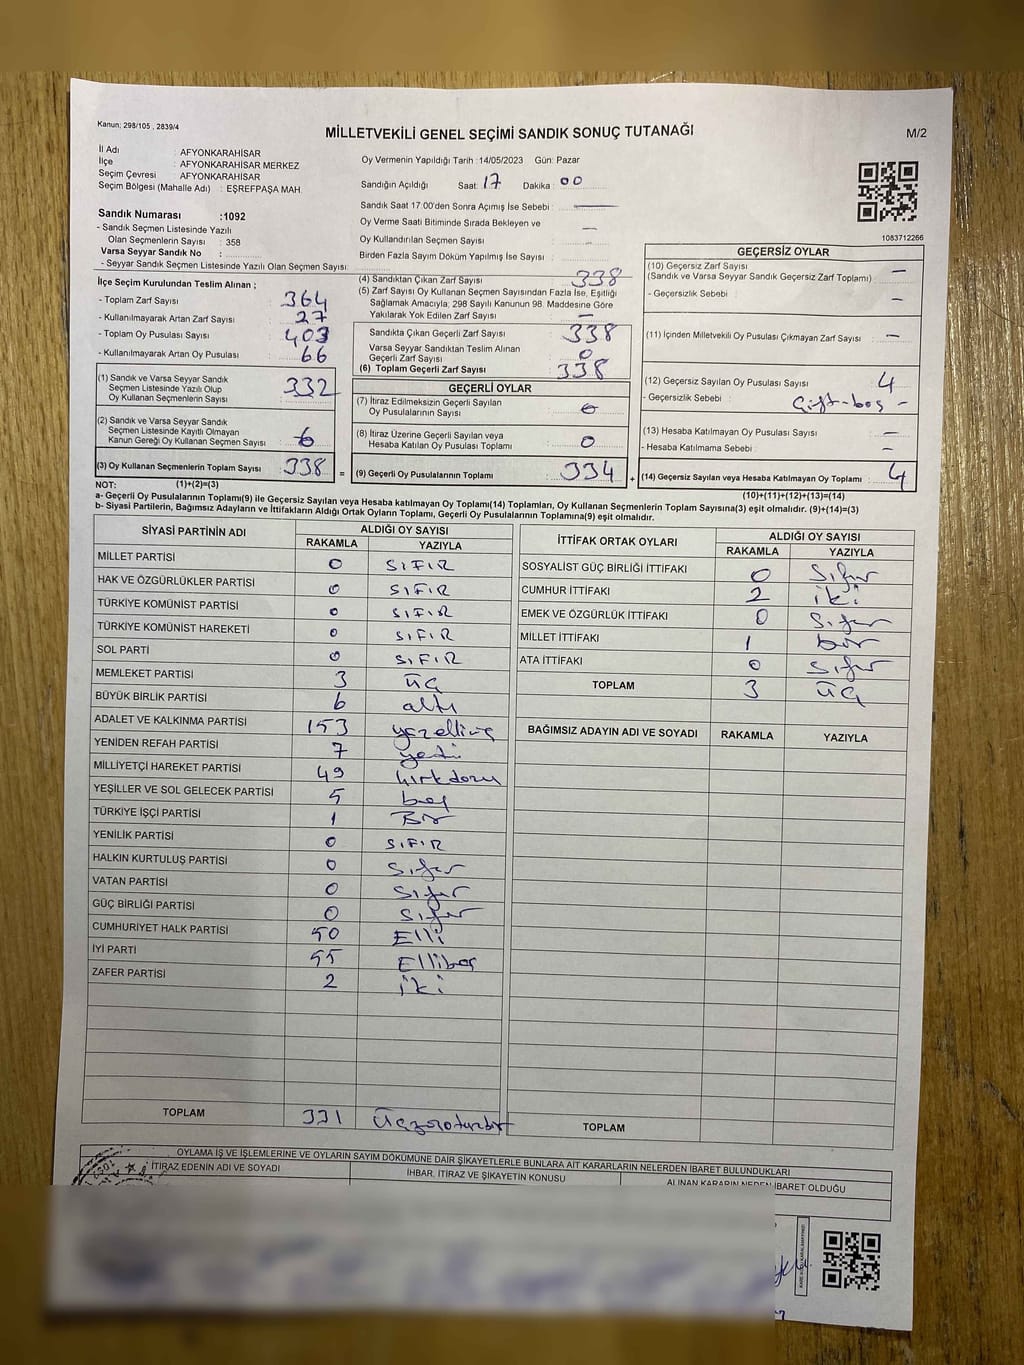 Kanun; 298/105 , 2839/4
MİLLETVEKİLİ GENEL SEÇİMİ SANDIK SONUÇ TUTANAĞI
M/2
İl Adı : AFYONKARAHİSAR
İlçe : AFYONKARAHİSAR MERKEZ
Seçim Çevresi : AFYONKARAHİSAR
Seçim Bölgesi (Mahalle Adı) : EŞREFPAŞA MAH.
Sandık Numarası :1092
- Sandık Seçmen Listesinde Yazılı
Olan Seçmenlerin Sayısı : 358
Varsa Seyyar Sandık No :
- Seyyar Sandık Seçmen Listesinde Yazılı Olan Seçmen Sayısı:
Oy Vermenin Yapıldığı Tarih : 14/05/2023 Gün: Pazar
Sandığın Açıldığı Saat: 17 Dakika : 00
Sandık Saat 17.00'den Sonra Açımış İse Sebebi : —
Oy Verme Saati Bitiminde Sırada Bekleyen ve —
Oy Kullandırılan Seçmen Sayısı —
Birden Fazla Sayım Döküm Yapılmış İse Sayısı :
1083712266
İlçe Seçim Kurulundan Teslim Alınan ;
- Toplam Zarf Sayısı : 364
- Kullanılmayarak Artan Zarf Sayısı : 27
- Toplam Oy Pusulası Sayısı : 403
- Kullanılmayarak Artan Oy Pusulası : 66
(1) Sandık ve Varsa Seyyar Sandık
Seçmen Listesinde Yazılı Olup
Oy Kullanan Seçmenlerin Sayısı : 332
(2) Sandık ve Varsa Seyyar Sandık
Seçmen Listesinde Kayıtlı Olmayan
Kanun Gereği Oy Kullanan Seçmen Sayısı : 6
(3) Oy Kullanan Seçmenlerin Toplam Sayısı : 338 =
(4) Sandıktan Çıkan Zarf Sayısı : 338
(5) Zarf Sayısı Oy Kullanan Seçmen Sayısından Fazla İse, Eşitliği
Sağlamak Amacıyla, 298 Sayılı Kanunun 98. Maddesine Göre
Yakılarak Yok Edilen Zarf Sayısı : —
Sandıkta Çıkan Geçerli Zarf Sayısı : 338
Varsa Seyyar Sandıktan Teslim Alınan
Geçerli Zarf Sayısı : 0
(6) Toplam Geçerli Zarf Sayısı : 338
GEÇERLİ OYLAR
(7) İtiraz Edilmeksizin Geçerli Sayılan
Oy Pusulalarının Sayısı : 0
(8) İtiraz Üzerine Geçerli Sayılan veya
Hesaba Katılan Oy Pusulası Toplamı : 0
(9) Geçerli Oy Pusulalarının Toplamı : 334 +
GEÇERSİZ OYLAR
(10) Geçersiz Zarf Sayısı
(Sandık ve Varsa Seyyar Sandık Geçersiz Zarf Toplamı) : —
- Geçersizlik Sebebi : —
(11) İçinden Milletvekili Oy Pusulası Çıkmayan Zarf Sayısı : —
(12) Geçersiz Sayılan Oy Pusulası Sayısı : 4
- Geçersizlik Sebebi : Çift-boş -
(13) Hesaba Katılmayan Oy Pusulası Sayısı : —
- Hesaba Katılmama Sebebi : —
(14) Geçersiz Sayılan veya Hesaba Katılmayan Oy Toplamı : 4
NOT: (1)+(2)=(3)
(10)+(11)+(12)+(13)=(14)
a- Geçerli Oy Pusulalarının Toplamı(9) ile Geçersiz Sayılan veya Hesaba katılmayan Oy Toplamı(14) Toplamları, Oy Kullanan Seçmenlerin Toplam Sayısına(3) eşit olmalıdır. (9)+(14)=(3)
b- Siyasi Partilerin, Bağımsız Adayların ve İttifakların Aldığı Ortak Oyların Toplamı, Geçerli Oy Pusulalarının Toplamına(9) eşit olmalıdır.
SİYASİ PARTİNİN ADI ALDIĞI OY SAYISI
RAKAMLA YAZIYLA
MİLLET PARTİSİ 0 SIFIR
HAK VE ÖZGÜRLÜKLER PARTİSİ 0 SIFIR
TÜRKİYE KOMÜNİST PARTİSİ 0 SIFIR
TÜRKİYE KOMÜNİST HAREKETİ 0 SIFIR
SOL PARTİ 0 SIFIR
MEMLEKET PARTİSİ 3 ÜÇ
BÜYÜK BİRLİK PARTİSİ 6 altı
ADALET VE KALKINMA PARTİSİ 153 yüzelliüç
YENİDEN REFAH PARTİSİ 7 yedi
MİLLİYETÇİ HAREKET PARTİSİ 49 kırkdokuz
YEŞİLLER VE SOL GELECEK PARTİSİ 5 beş
TÜRKİYE İŞÇİ PARTİSİ 1 Bir
YENİLİK PARTİSİ 0 SIFIR
HALKIN KURTULUŞ PARTİSİ 0 Sıfır
VATAN PARTİSİ 0 Sıfır
GÜÇ BİRLİĞİ PARTİSİ 0 Sıfır
CUMHURİYET HALK PARTİSİ 50 Elli
İYİ PARTİ 55 Ellibeş
ZAFER PARTİSİ 2 iki
TOPLAM 331 Üçyüzotuzbir
İTTİFAK ORTAK OYLARI ALDIĞI OY SAYISI
RAKAMLA YAZIYLA
SOSYALİST GÜÇ BİRLİĞİ İTTİFAKI 0 Sıfır
CUMHUR İTTİFAKI 2 iki
EMEK VE ÖZGÜRLÜK İTTİFAKI 0 Sıfır
MİLLET İTTİFAKI 1 bir
ATA İTTİFAKI 0 Sıfır
TOPLAM 3 ÜÇ
BAĞIMSIZ ADAYIN ADI VE SOYADI RAKAMLA YAZIYLA
TOPLAM
OYLAMA İŞ VE İŞLEMLERİNE VE OYLARIN SAYIM DÖKÜMÜNE DAİR ŞİKAYETLERLE BUNLARA AİT KARARLARIN NELERDEN İBARET BULUNDUKLARI
İTİRAZ EDENİN ADI VE SOYADI İHBAR, İTİRAZ VE ŞİKAYETİN KONUSU ALINAN KARARIN NEDEN İBARET OLDUĞU